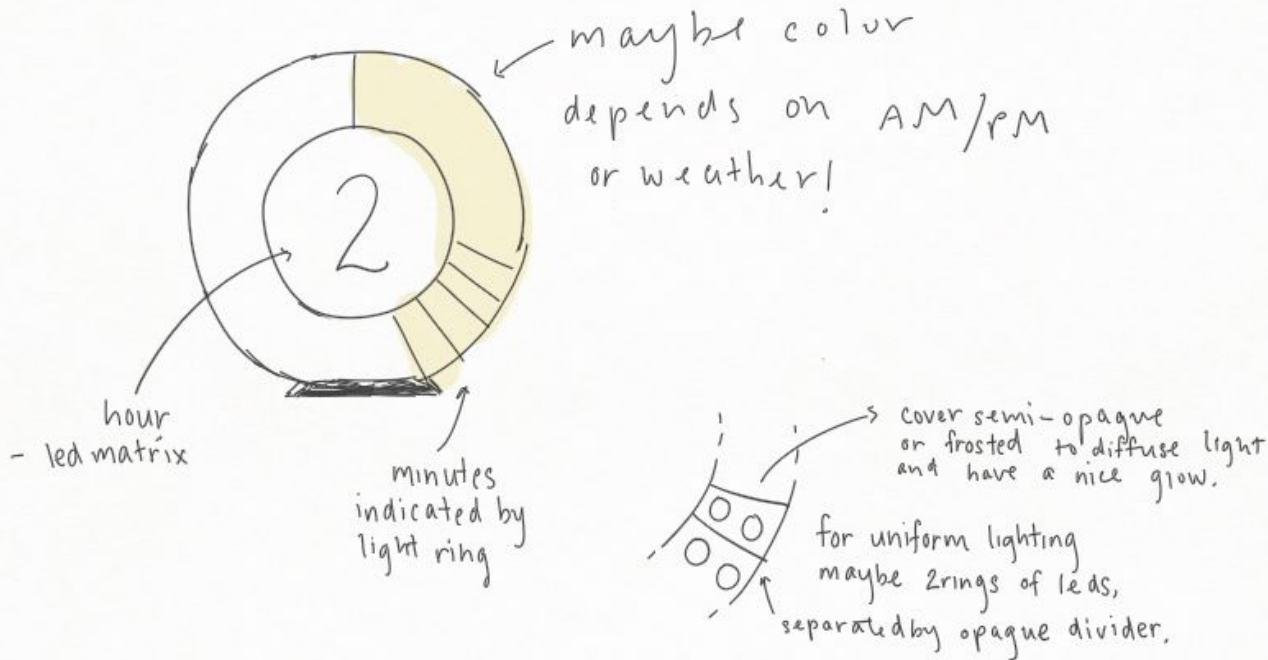 maybe color
depends on AM/PM
or weather!
2
hour
- led matrix
minutes
indicated by
light ring
cover semi-opaque
or frosted to diffuse light
and have a nice glow.
for uniform lighting
maybe 2rings of leds,
separated by opaque divider.